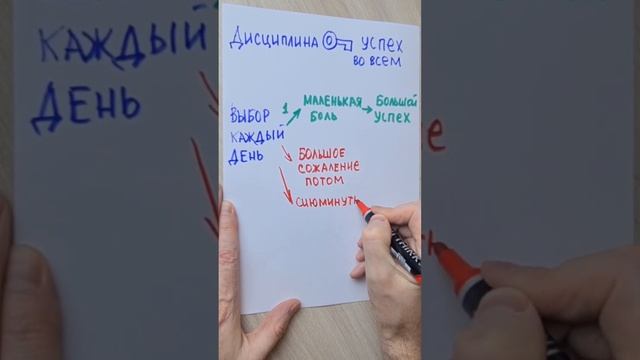 Дисциплина успех
во всем
Выбор
каждый
день
1
маленькая
боль
большой
успех
большое
сожаление
потом
сиюминутн